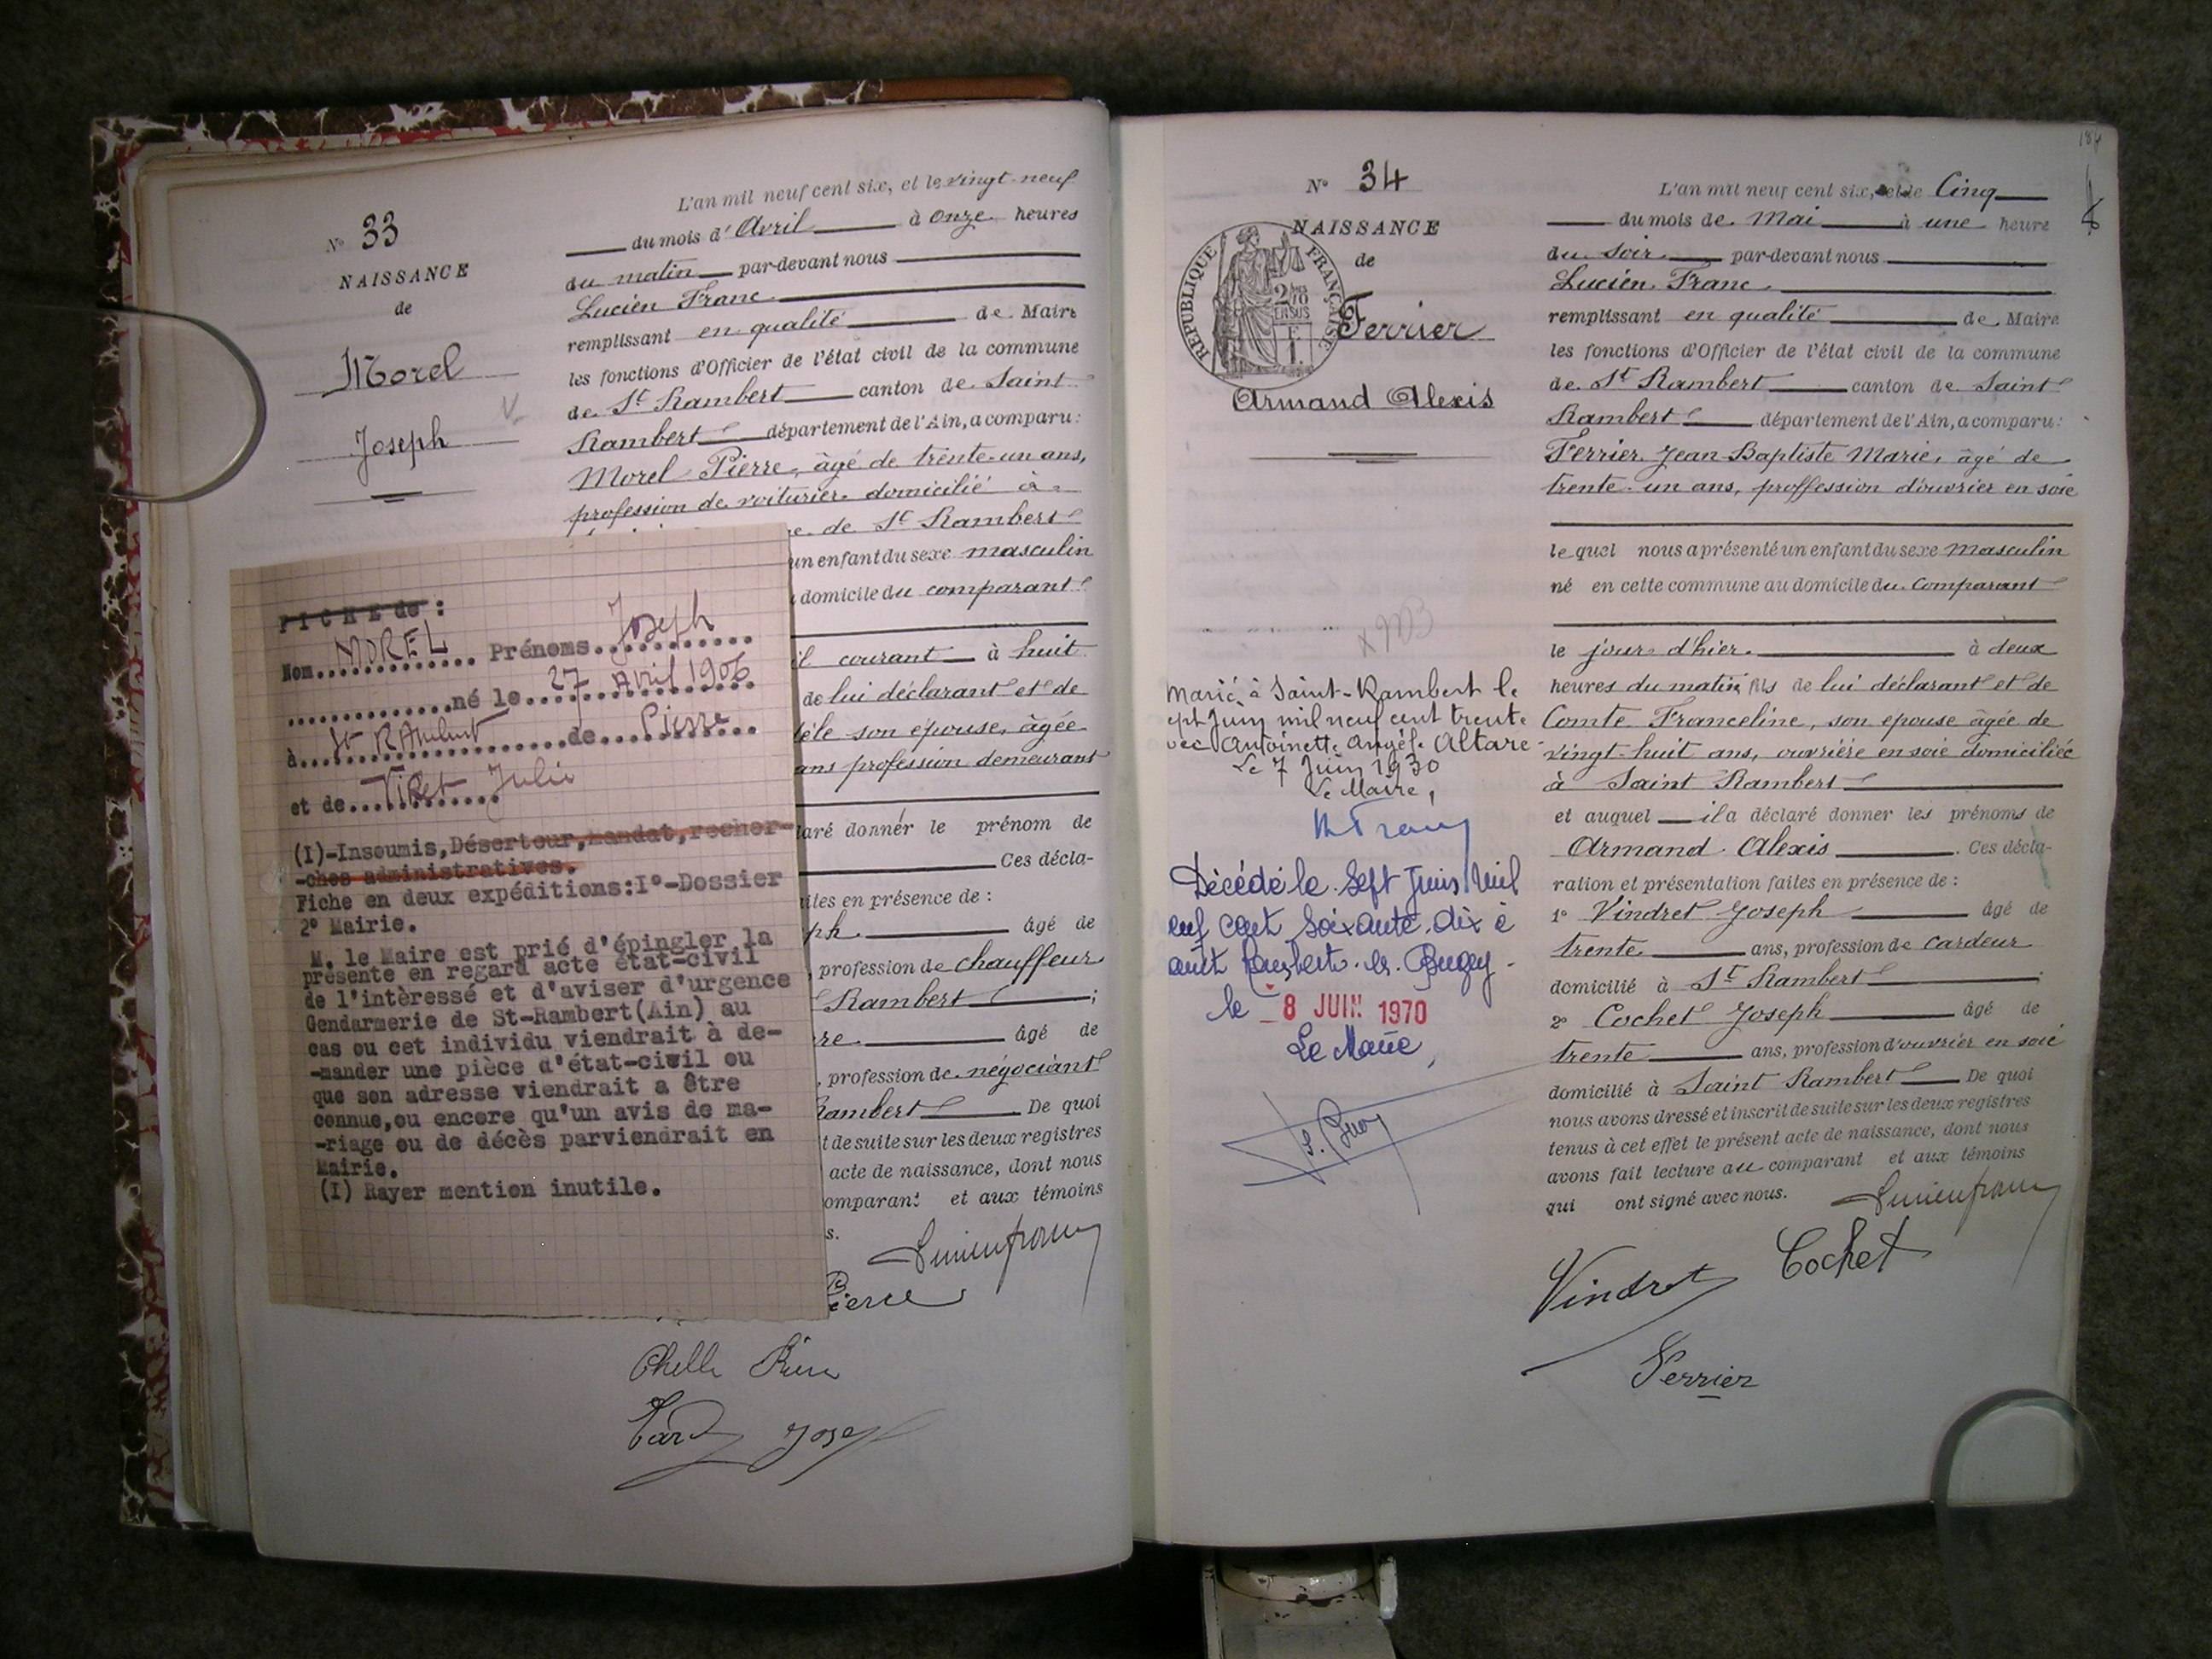 N° 33
NAISSANCE
de
Morel
Joseph
L'an mil neuf cent six, et le vingt-neuf
du mois d'Avril à onze heures
du matin par-devant nous
Lucien Franc
remplissant en qualité de Maire
les fonctions d'Officier de l'état civil de la commune
de St Rambert canton de Saint
Rambert département de l'Ain, a comparu:
Morel Pierre, âgé de trente-un ans,
profession de voiturier domicilié à
de St Rambert
un enfant du sexe masculin
domicile du comparant
courant à huit
de lui déclarant et de
son épouse, âgée
ans profession demeurant
donner le prénom de
Ces décla-
en présence de :
âgé de
, profession de chauffeur
Rambert ;
âgé de
, profession de négociant
Rambert De quoi
de suite sur les deux registres
acte de naissance, dont nous
comparant et aux témoins
s.
Lucien franc
Pierre
Chelle
FICHE de :
Nom MOREL Prénoms Joseph
né le 27 Avril 1906
à St RAmbert de Pierre
et de ViRet Julie
(I)-Insoumis, Déserteur, mandat, recher-
-ches administratives.
Fiche en deux expéditions:I°-Dossier
2° Mairie.
M. le Maire est prié d'épingler la
présente en regard acte état-civil
de l'intèressé et d'aviser d'urgence
Gendarmerie de St-Rambert(Ain) au
cas ou cet individu viendrait à de-
-mander une pièce d'état-civil ou
que son adresse viendrait a être
connue,ou encore qu'un avis de ma-
-riage ou de décès parviendrait en
Mairie.
(I) Rayer mention inutile.
184
N° 34
NAISSANCE
de
RÉPUBLIQUE FRANÇAISE
Ferrier
Armand Alexis
Marié à Saint-Rambert le
ept Juin mil neuf cent trente
vec Antoinette Angèle Altare
Le 7 Juin 1930
Le Maire,
Décédé le Sept Juin Mil
euf cent Soixante-dix à
aint Rambert-en-Bugey
le - 8 JUIN 1970
Le Maire,
L'an mil neuf cent six, et le Cinq
du mois de Mai à une heure
du soir par-devant nous
Lucien Franc
remplissant en qualité de Maire
les fonctions d'Officier de l'état civil de la commune
de St Rambert canton de Saint
Rambert département de l'Ain, a comparu:
Ferrier Jean-Baptiste Marie, âgé de
trente-un ans, proffession d'ouvrier en soie
le quel nous a présenté un enfant du sexe masculin
né en cette commune au domicile du Comparant
le jour d'hier à deux
heures du matin, fils de lui déclarant et de
Comte Franceline, son épouse âgée de
vingt-huit ans, ouvrière en soie domiciliée
à Saint Rambert
et auquel il a déclaré donner les prénoms de
Armand Alexis . Ces décla-
ration et présentation faites en présence de :
1° Vindret Joseph âgé de
trente ans, profession de cardeur
domicilié à St Rambert
2° Cochet Joseph âgé de
trente ans, profession d'ouvrier en soie
domicilié à Saint Rambert De quoi
nous avons dressé et inscrit de suite sur les deux registres
tenus à cet effet le présent acte de naissance, dont nous
avons fait lecture au comparant et aux témoins
qui ont signé avec nous.
Lucien franc
Vindret
Cochet
Ferrier